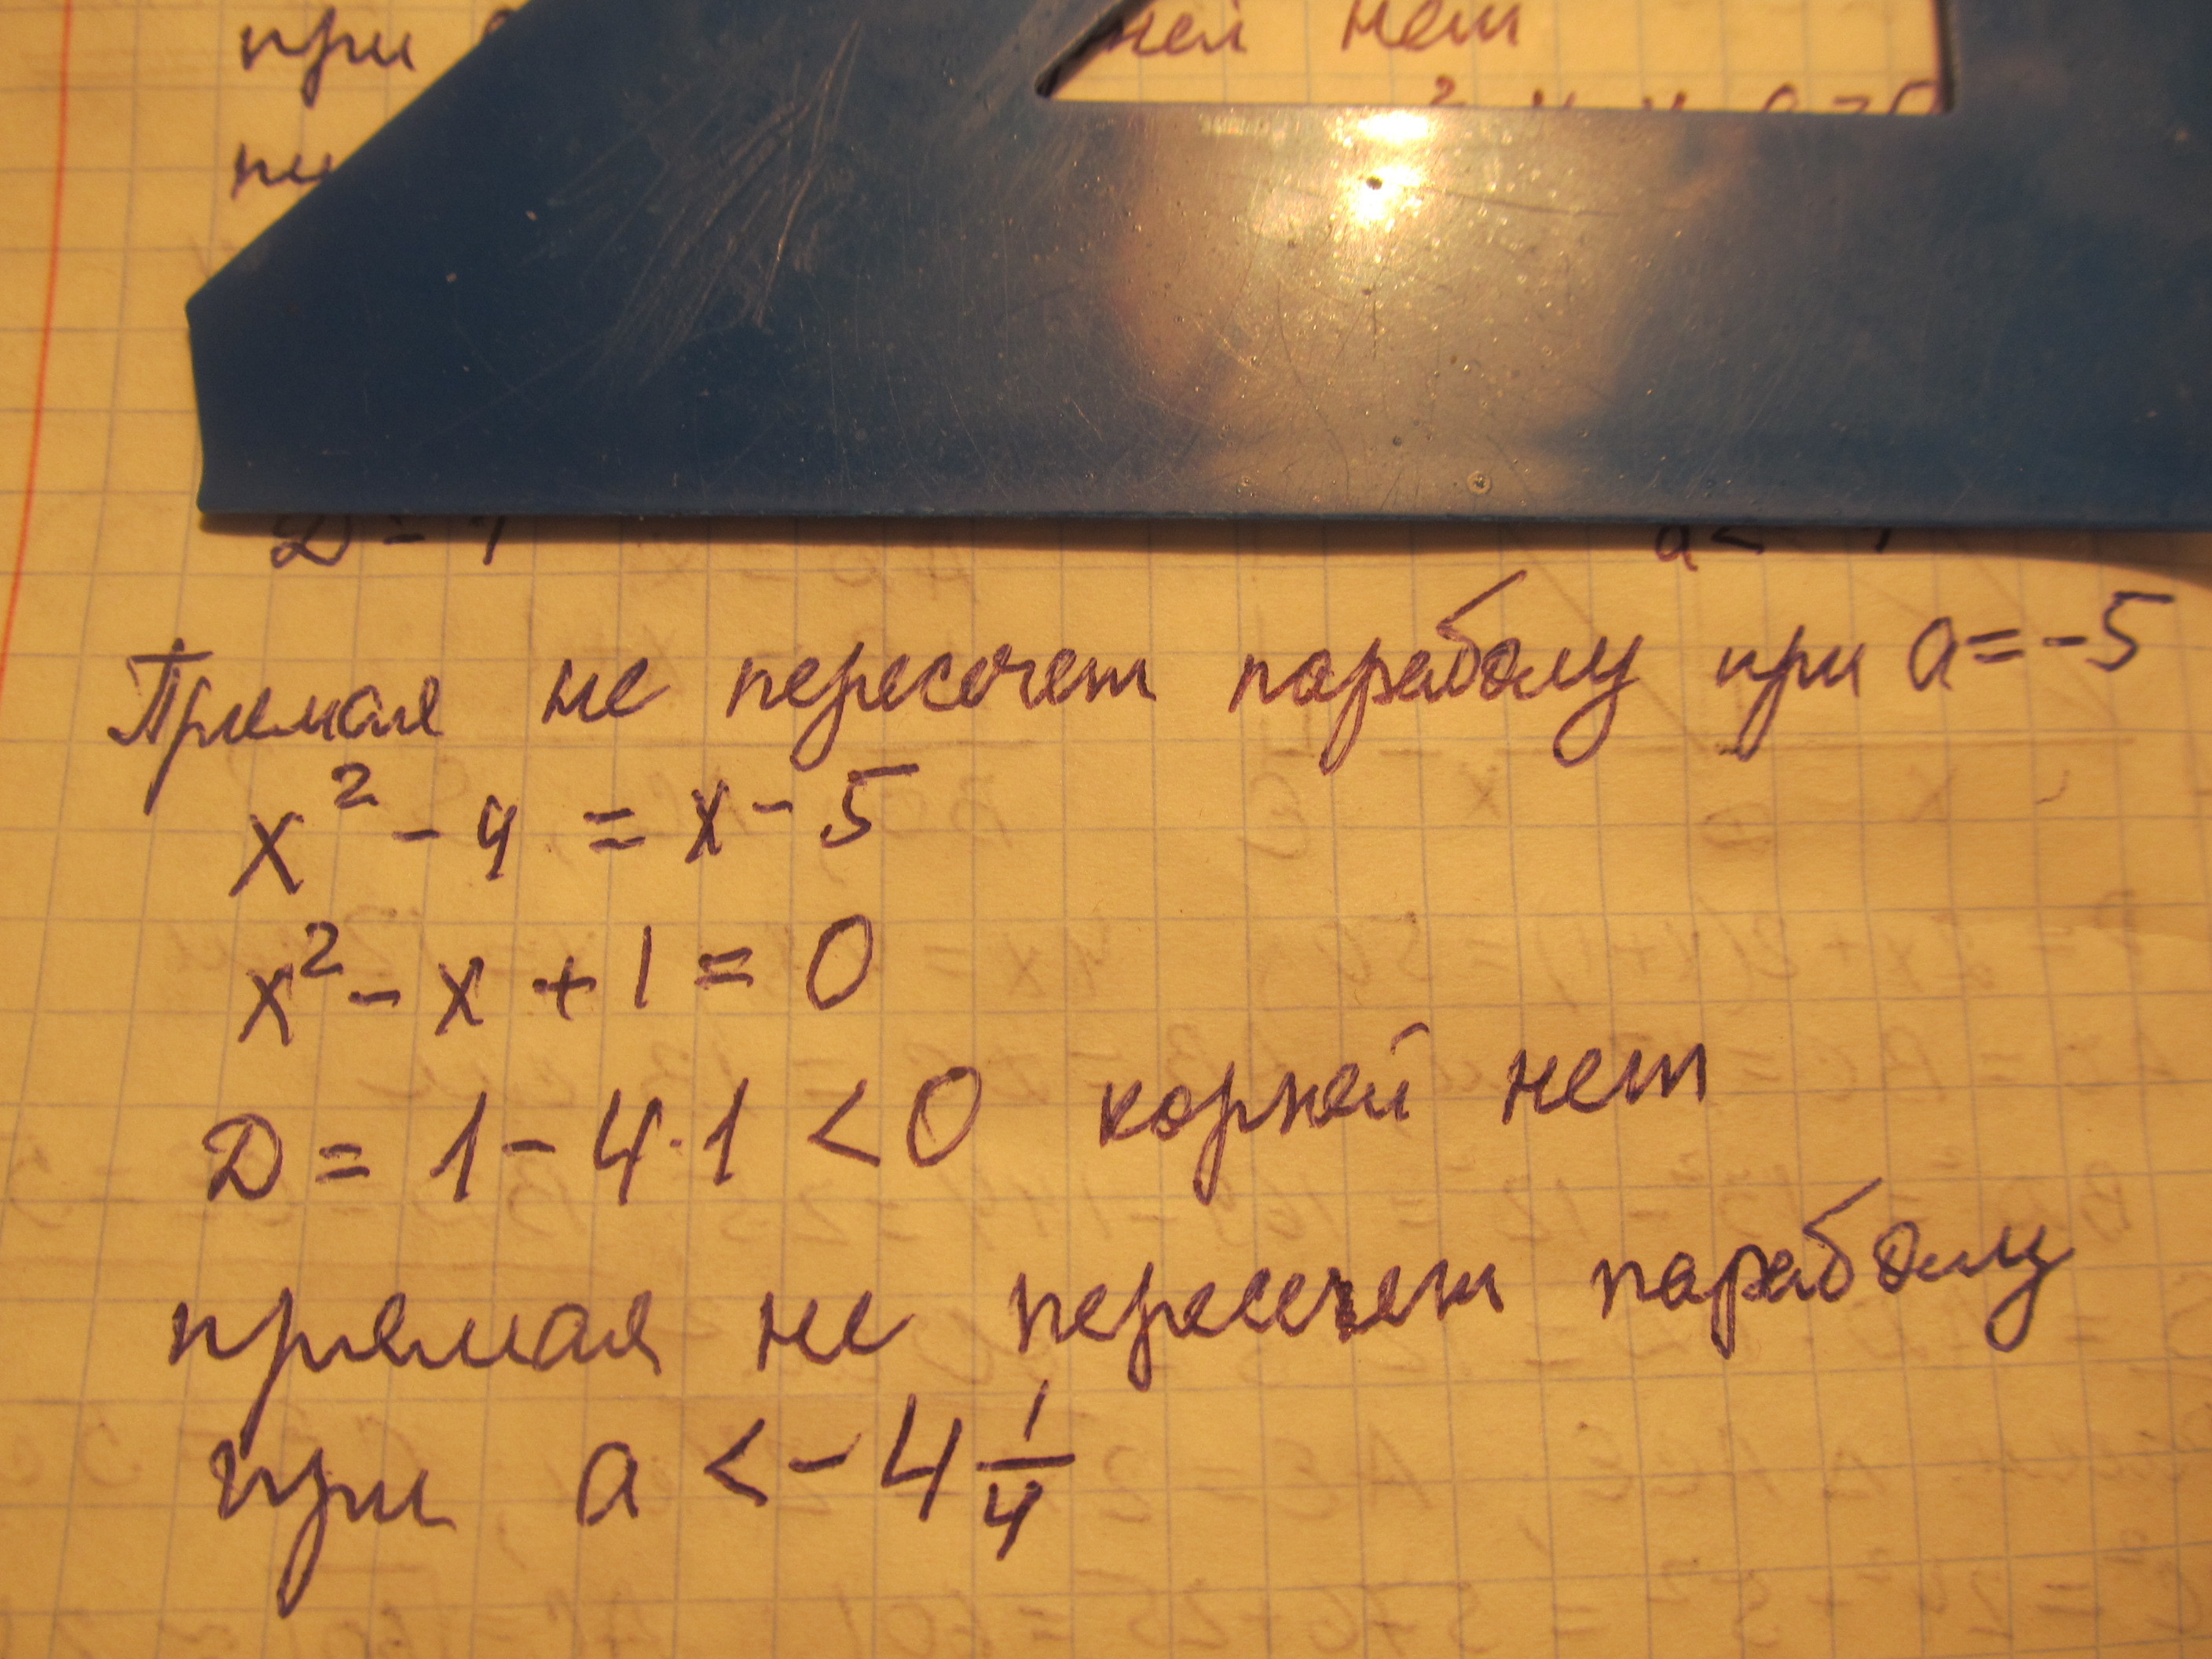 при нет
Прямая не пересечет параболу при a=-5
x² - 4 = x - 5
x² - x + 1 = 0
Д = 1 - 4·1 < 0 корней нет
прямая не пересечет параболу
при a < - 4 1/4